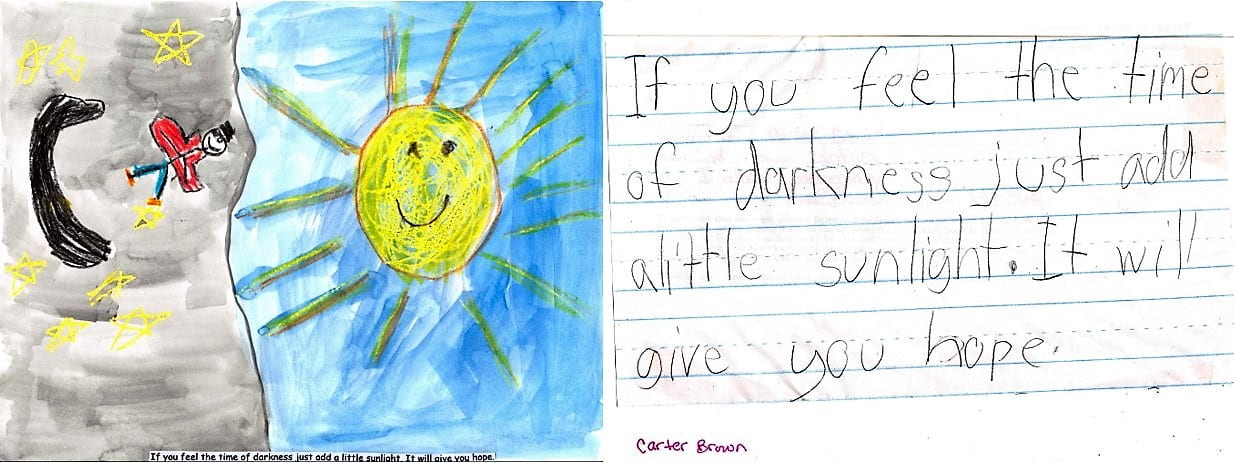 If you feel the time of darkness just add a little sunlight. It will give you hope.
If you feel the time
of darkness just add
alittle sunlight. It will
give you hope.
Carter Brown